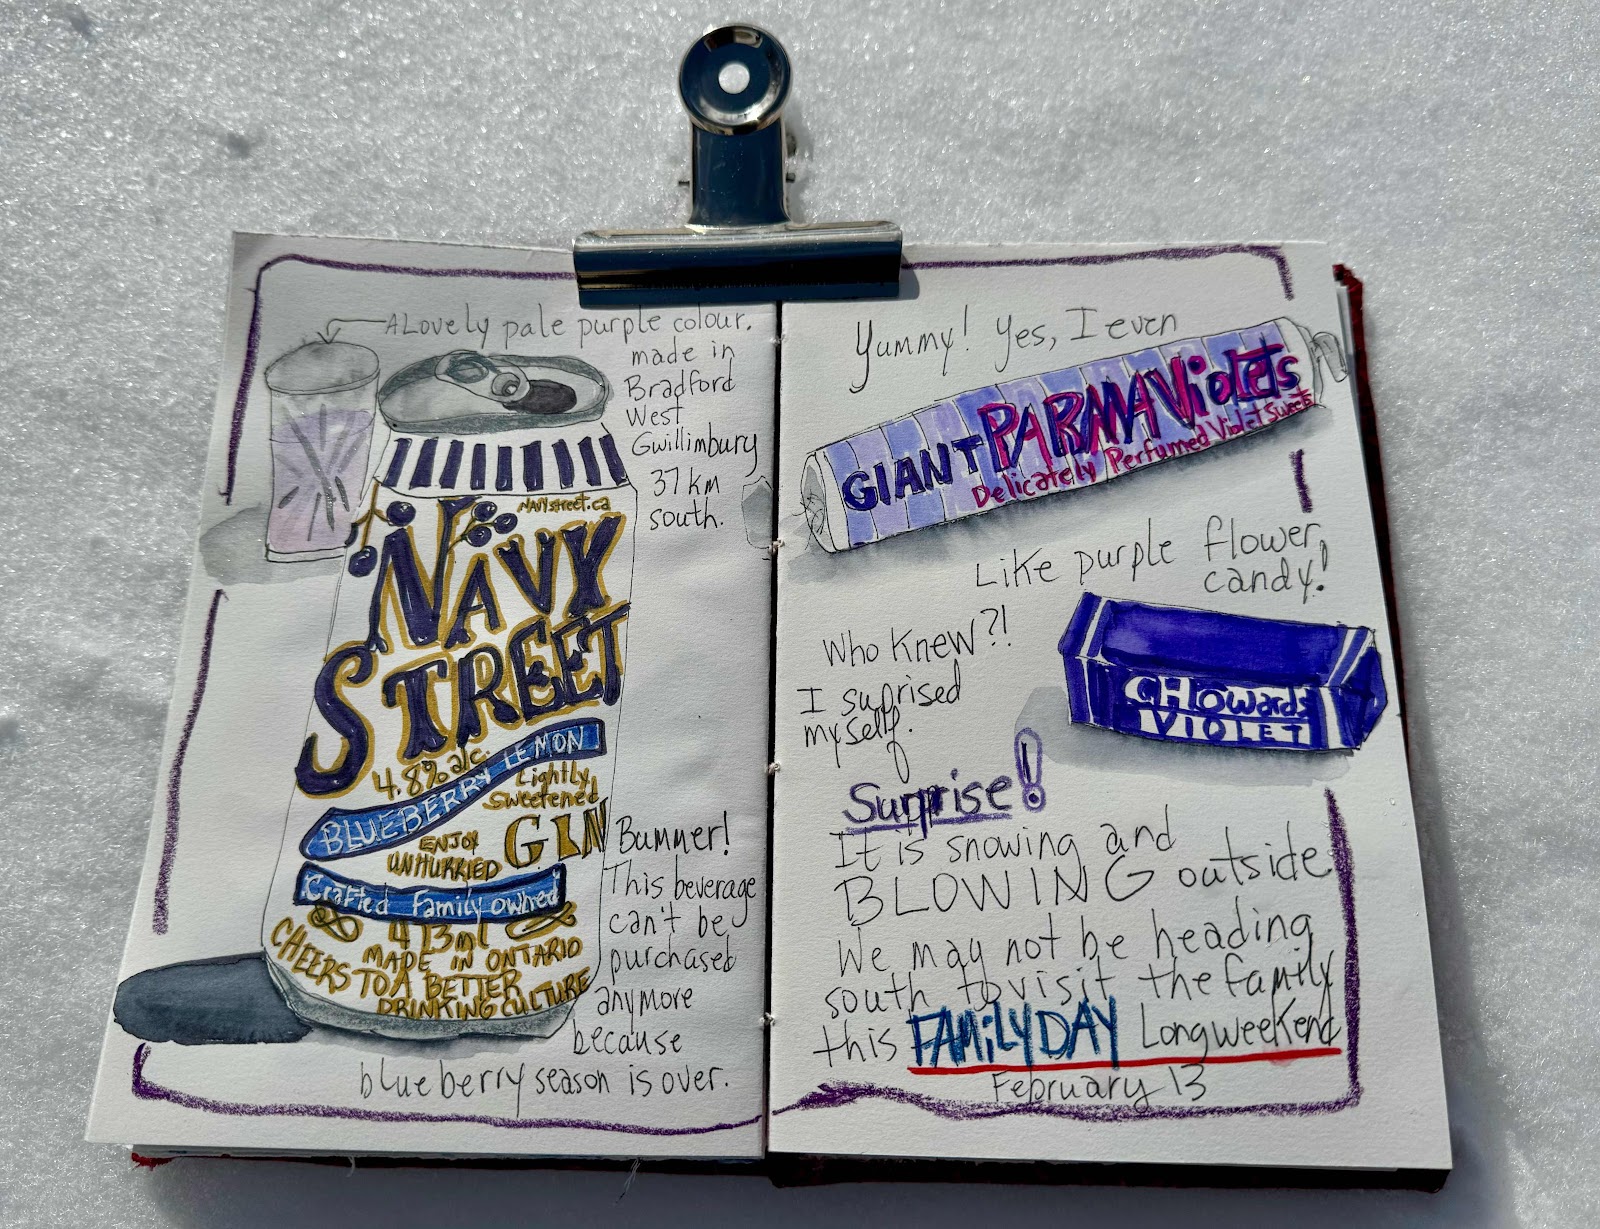 A Lovely pale purple colour.
made in
Bradford
West
Gwillimbury
37 km
south.
NAVYstreet.ca
NAVY
STREET
4.8% alc.
BLUEBERRY LEMON
Lightly
sweetened
ENJOY
UNHURRIED
GIN
Crafted Family owned
473ml
MADE IN ONTARIO
CHEERS TO A BETTER
DRINKING CULTURE
Bummer!
This beverage
can't be
purchased
anymore
because
blueberry season is over.
Yummy! Yes, I even
GIANT PARMA Violets
Delicately Perfumed Violet Sweets
Like purple flower,
candy!
Who Knew?!
I suprised
myself.
CHowards
VIOLET
Surprise!
It is snowing and
BLOWING outside
We may not be heading
south to visit the family
this FAMILY DAY Long weekend
February 13